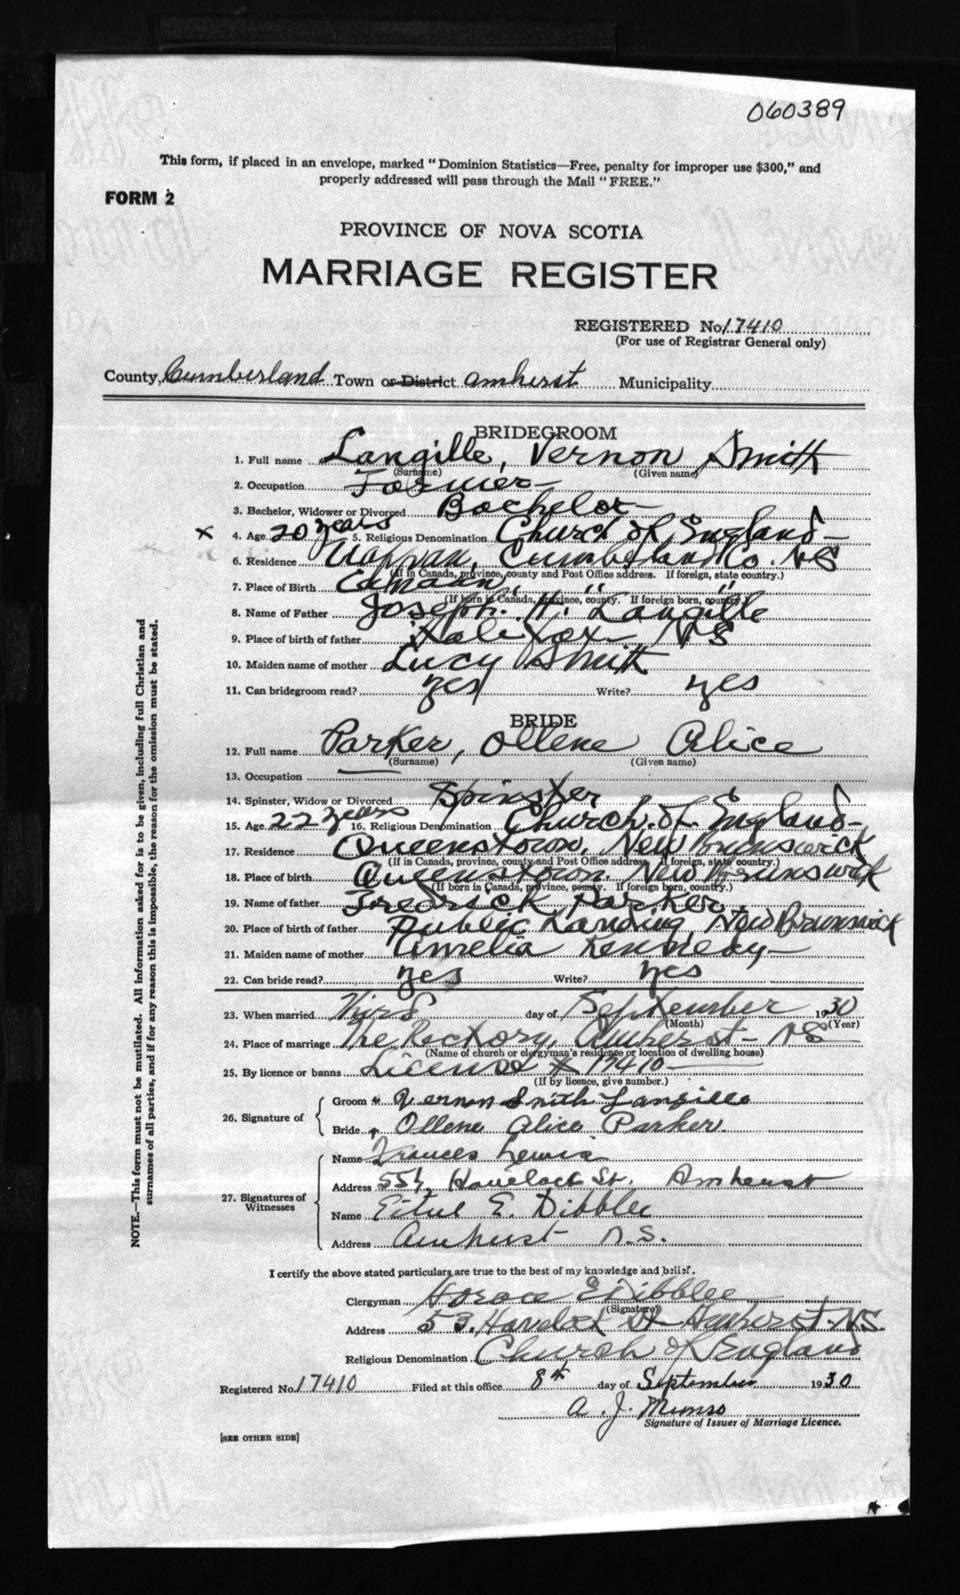 060389
This form, if placed in an envelope, marked "Dominion Statistics—Free, penalty for improper use $300," and
properly addressed will pass through the Mail "FREE."
FORM 2
PROVINCE OF NOVA SCOTIA
MARRIAGE REGISTER
REGISTERED No. 17410
(For use of Registrar General only)
County, Cumberland Town or District Amherst Municipality
BRIDEGROOM
1. Full name Langille, Vernon Smith
(Surname) (Given name)
2. Occupation Farmer
3. Bachelor, Widower or Divorced Bachelor
x 4. Age 20 years 5. Religious Denomination Church of England
6. Residence Nappan, Cumberland Co. NS
(If in Canada, province, county and Post Office address. If foreign, state country.)
7. Place of Birth Canaan, " "
(If born in Canada, province, county. If foreign born, country.)
8. Name of Father Joseph H. Langille
9. Place of birth of father Halifax NS
10. Maiden name of mother Lucy Smith
11. Can bridegroom read? yes Write? yes
BRIDE
12. Full name Parker, Ollene Alice
(Surname) (Given name)
13. Occupation
14. Spinster, Widow or Divorced Spinster
15. Age 22 years 16. Religious Denomination Church of England
17. Residence Queenstown, New Brunswick
(If in Canada, province, county and Post Office address. If foreign, state country.)
18. Place of birth Queenstown, New Brunswick
(If born in Canada, province, county. If foreign born, country.)
19. Name of father Fredrick Parker
20. Place of birth of father Public Landing, New Brunswick
21. Maiden name of mother Amelia Kennedy
22. Can bride read? yes Write? yes
23. When married day of September 1930
(Month) (Year)
24. Place of marriage The Rectory, Amherst NS
(Name of church or clergyman's residence or location of dwelling house)
25. By licence or banns License # 17410
(If by licence, give number.)
26. Signature of Groom Vernon Smith Langille
Bride Ollene Alice Parker
27. Signatures of Witnesses Name Frances Lewis
Address Havelock St. Amherst
Name Ethel E. Dibblee
Address Amherst N.S.
I certify the above stated particulars are true to the best of my knowledge and belief.
Clergyman Horace E Dibblee
(Signature)
Address 53, Havelock St Amherst. N.S.
Religious Denomination Church of England
Registered No. 17410 Filed at this office 8th day of September 1930
A. J. Munro
Signature of Issuer of Marriage Licence.
[SEE OTHER SIDE]
NOTE.—This form must not be mutilated. All information asked for is to be given, including full Christian and
surnames of all parties, and if for any reason this is impossible, the reason for the omission must be stated.